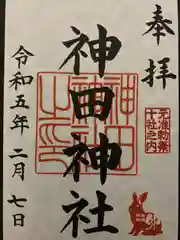 奉拝
元准勅祭
十社之内
神田神社
令和五年二月七日
卯